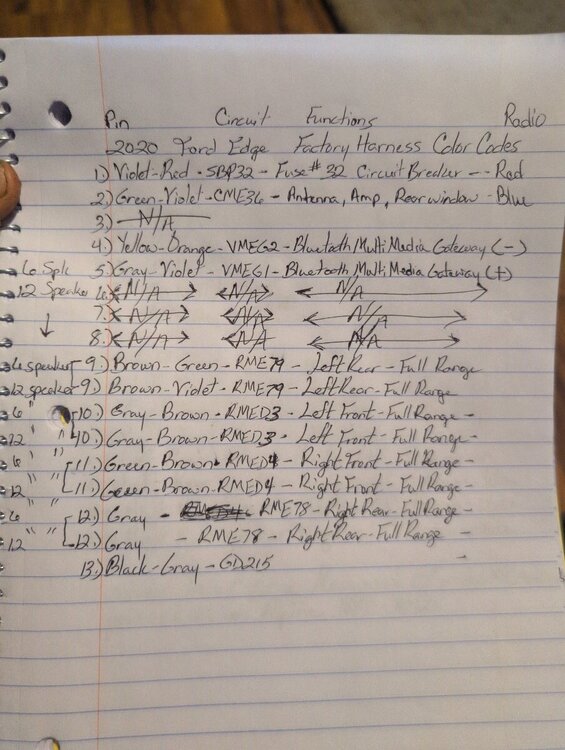 Pin Circuit Functions Radio
2020 Ford Edge Factory Harness Color Codes
1.) Violet-Red - SBP32 - Fuse # 32 Circuit Breaker -- Red
2.) Green-Violet - CME36 - Antenna, Amp, Rear window - Blue
3.) N/A
4.) Yellow-Orange - VMEG2 - Bluetooth/Multi Media Gateway (-)
6 Spk 5.) Gray-Violet - VMEG1 - Bluetooth, Multi Media Gateway (+)
12 Speaker 6.) N/A N/A N/A
7.) N/A N/A N/A
8.) N/A N/A N/A
6 speaker 9.) Brown-Green - RME79 - Left Rear - Full Range
12 speaker 9.) Brown-Violet - RME79 - Left Rear - Full Range
6 " 10.) Gray-Brown - RMED3 - Left Front - Full Range -
12 " " 10.) Gray-Brown - RMED3 - Left Front - Full Range -
6 " " 11.) Green-Brown - RMED4 - Right Front - Full Range -
12 " " 11.) Green-Brown - RMED4 - Right Front - Full Range -
6 " " 12.) Gray - RME78 - Right Rear - Full Range -
12 " " 12.) Gray - RME78 - Right Rear - Full Range -
13.) Black-Gray - GD215 -